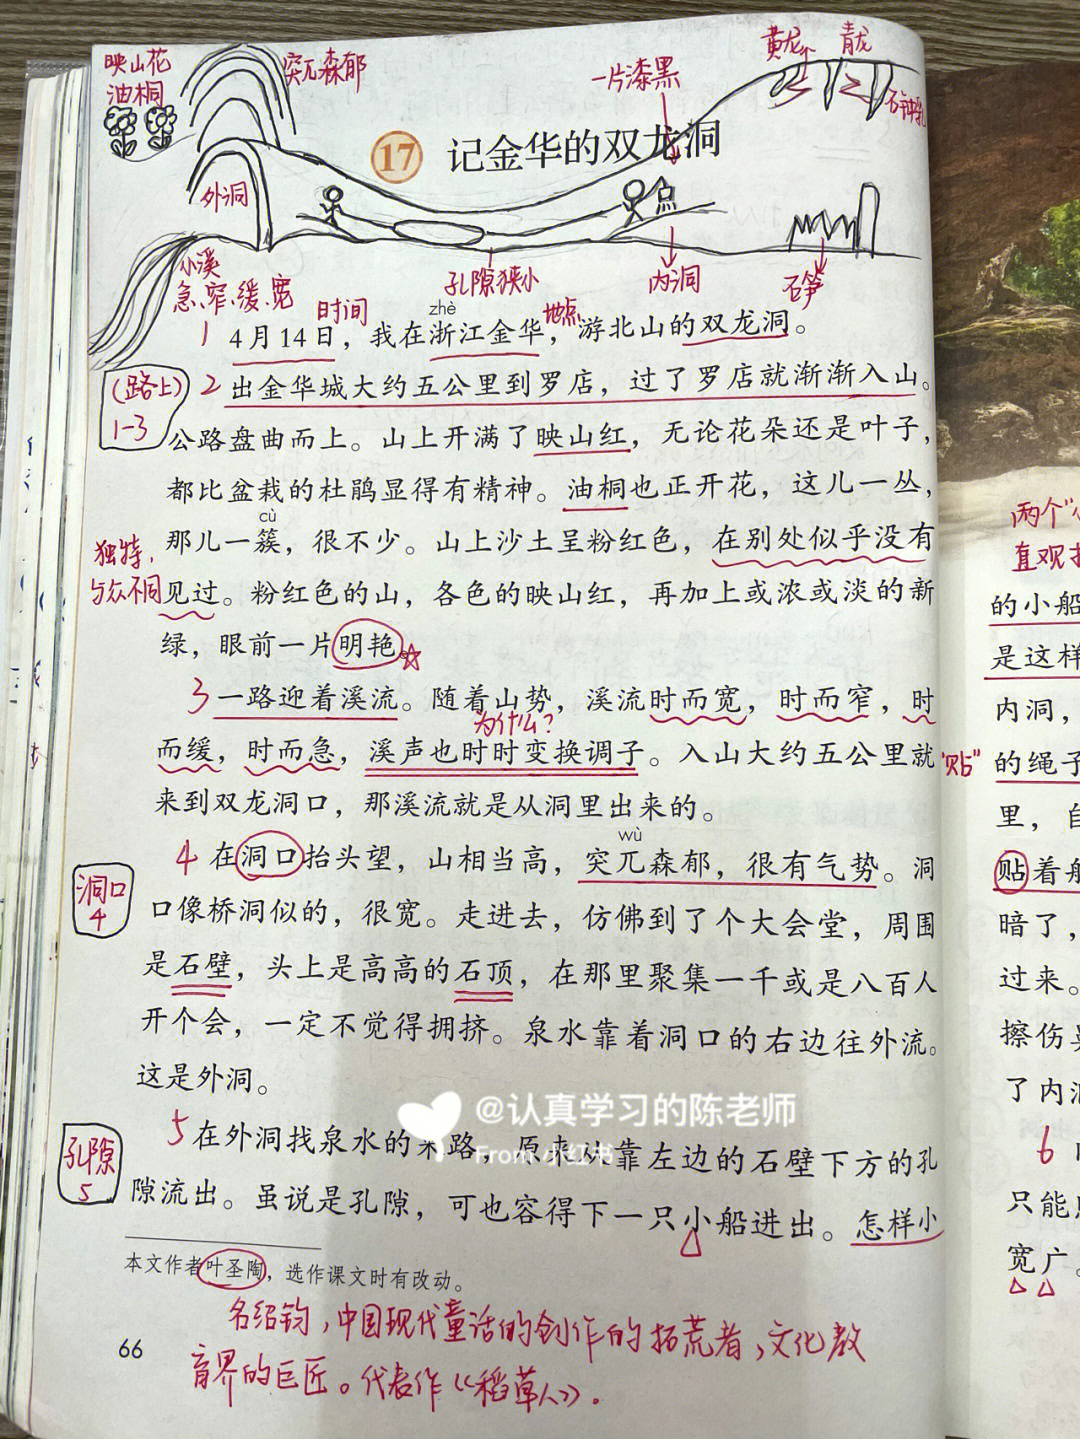 映山花
油桐
突兀森郁
一片漆黑
黄龙
青龙
石钟乳
17 记金华的双龙洞
外洞
小溪
急、窄、缓、宽
孔隙狭小
内洞
石笋
时间
zhè
地点
1 4月14日，我在浙江金华，游北山的双龙洞。
(路上)
1-3
2 出金华城大约五公里到罗店，过了罗店就渐渐入山。
公路盘曲而上。山上开满了映山红，无论花朵还是叶子，
都比盆栽的杜鹃显得有精神。油桐也正开花，这儿一丛，
cù
那儿一簇，很不少。山上沙土呈粉红色，在别处似乎没有
独特，
与众不同
见过。粉红色的山，各色的映山红，再加上或浓或淡的新
绿，眼前一片明艳。
3 一路迎着溪流。随着山势，溪流时而宽，时而窄，时
为什么？
而缓，时而急，溪声也时时变换调子。入山大约五公里就
来到双龙洞口，那溪流就是从洞里出来的。
wù
4 在洞口抬头望，山相当高，突兀森郁，很有气势。洞
洞口
4
口像桥洞似的，很宽。走进去，仿佛到了个大会堂，周围
是石壁，头上是高高的石顶，在那里聚集一千或是八百人
开个会，一定不觉得拥挤。泉水靠着洞口的右边往外流。
这是外洞。
@认真学习的陈老师
From 小红书
5 在外洞找泉水的来路，原来从靠左边的石壁下方的孔
孔隙
5
隙流出。虽说是孔隙，可也容得下一只小船进出。怎样小
本文作者叶圣陶，选作课文时有改动。
名绍钧，中国现代童话的创作的拓荒者，文化教
育界的巨匠。代表作《稻草人》.
66
两个"
直观
的小船
是这样
内洞，
"贴"
的绳子
里，自
贴着船
暗了，
过来。
擦伤鼻
了内洞
6
只能
宽广。